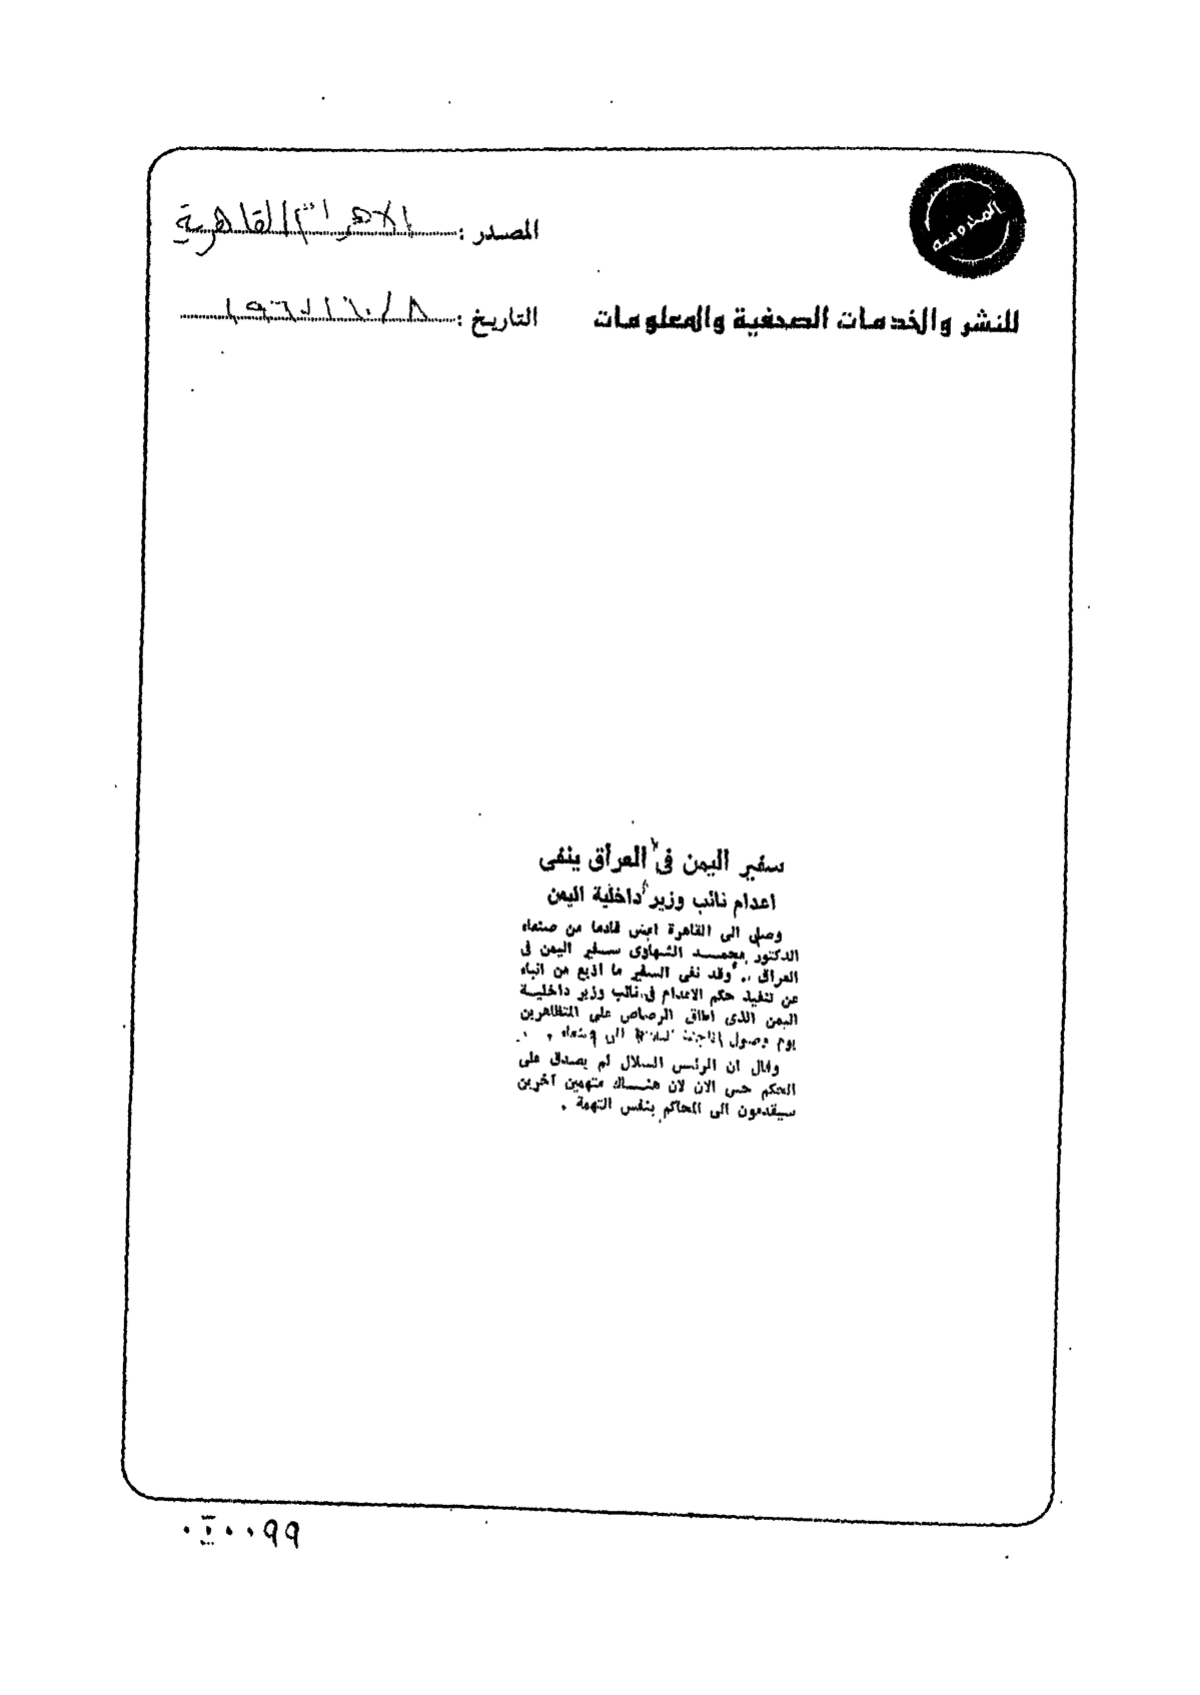 المحروسة
المصدر : الاهرام القاهرية
للنشر والخدمات الصحفية والمعلومات
التاريخ : ٨ / ١٠ / ١٩٦٧
سفير اليمن فى العراق ينفى
اعدام نائب وزير داخلية اليمن
وصل الى القاهرة امس قادما من صنعاء
الدكتور محمد الشهاوى سفير اليمن فى
العراق .. وقد نفى السفير ما اذيع من انباء
عن تنفيذ حكم الاعدام فى نائب وزير داخلية
اليمن الذى اطلق الرصاص على المتظاهرين
يوم وصول الى صنعاء .
وقال ان الرئيس السلال لم يصدق على
الحكم حتى الان لان هناك متهمين آخرين
سيقدمون الى المحاكم بنفس التهمة .